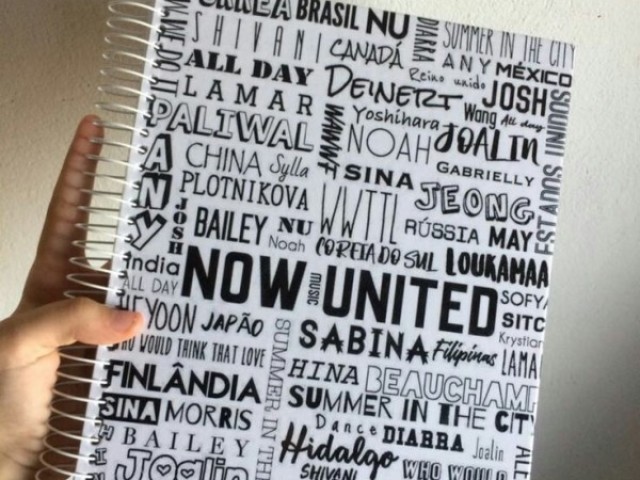 COREA BRASIL NU
SHIVANI
DIARRA
SUMMER IN THE CITY
CANADÁ
ANY MÉXICO
ALL DAY
Reino unido
DEINERT
JOSH
LAMAR
Wang All day
Yoshihara
PALIWAL
WWWF
NOAH
JOALIN
CHINA Sylla
SINA
GABRIELLY
ANY
PLOTNIKOVA
WWTTL
JEONG
JOSH
BAILEY NU
Noah
RÚSSIA MAY
COREIA DO SUL LOUKAMAA
India
NOW UNITED
MUSIC
ALL DAY
SOFYA
HEYOON JAPÃO
SITC
Krystian
WHO WOULD THINK THAT LOVE
SABINA Filipinas
LAMA
SUMMER IN TH
FINLÂNDIA
HINA BEAUCHAMP
SUMMER IN THE CITY
SINA MORRIS
Dance DIARRA Joalin
BAILEY
Hidalgo
Joalin
SHIVANI
WHO WOULD